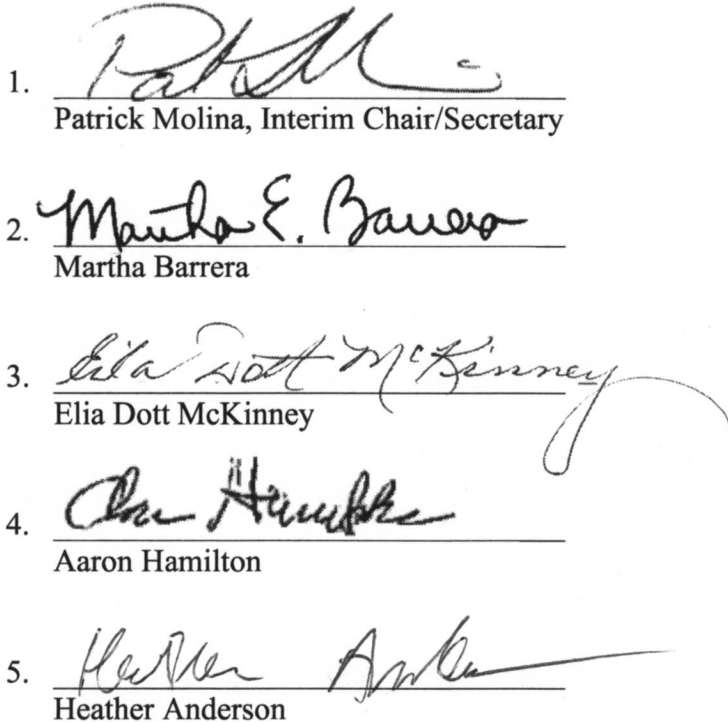 1.
Patrick Molina, Interim Chair/Secretary
2. Martha E. Barrera
Martha Barrera
3. Elia Dott McKinney
Elia Dott McKinney
4.
Aaron Hamilton
5. Heather
Heather Anderson